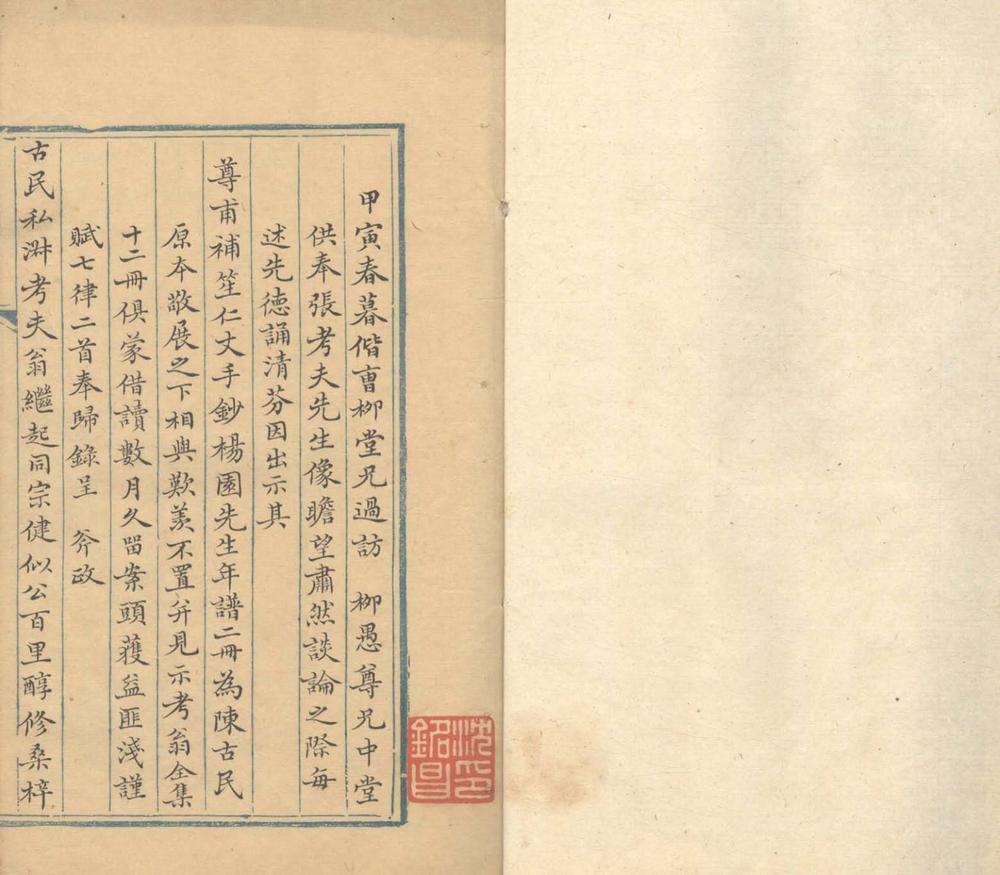 甲寅春暮偕曹柳堂兄過訪　柳愚尊兄中堂
供奉張考夫先生像瞻望肅然談論之際每
述先德誦清芬因出示其
尊甫補笙仁丈手鈔楊園先生年譜二冊為陳古民
原本敬展之下相與歎羨不置并見示考翁全集
十二冊俱蒙借讀數月久留案頭獲益匪淺謹
賦七律二首奉歸錄呈　斧政
古民私淑考夫翁繼起同宗健似公百里醇修桑梓
沈銘昌印